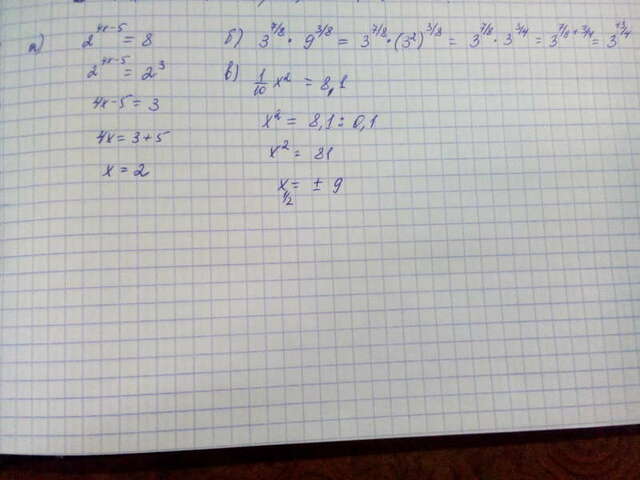 а) 2^(4x-5) = 8
2^(4x-5) = 2^3
4x-5 = 3
4x = 3+5
x = 2
б) 3^(7/8) · 9^(3/8) = 3^(7/8) · (3^2)^(3/8) = 3^(7/8) · 3^(3/4) = 3^(7/8+3/4) = 3^(13/4)
в) 1/10 x^2 = 8,1
x^2 = 8,1 : 0,1
x^2 = 81
x_(1/2) = ± 9